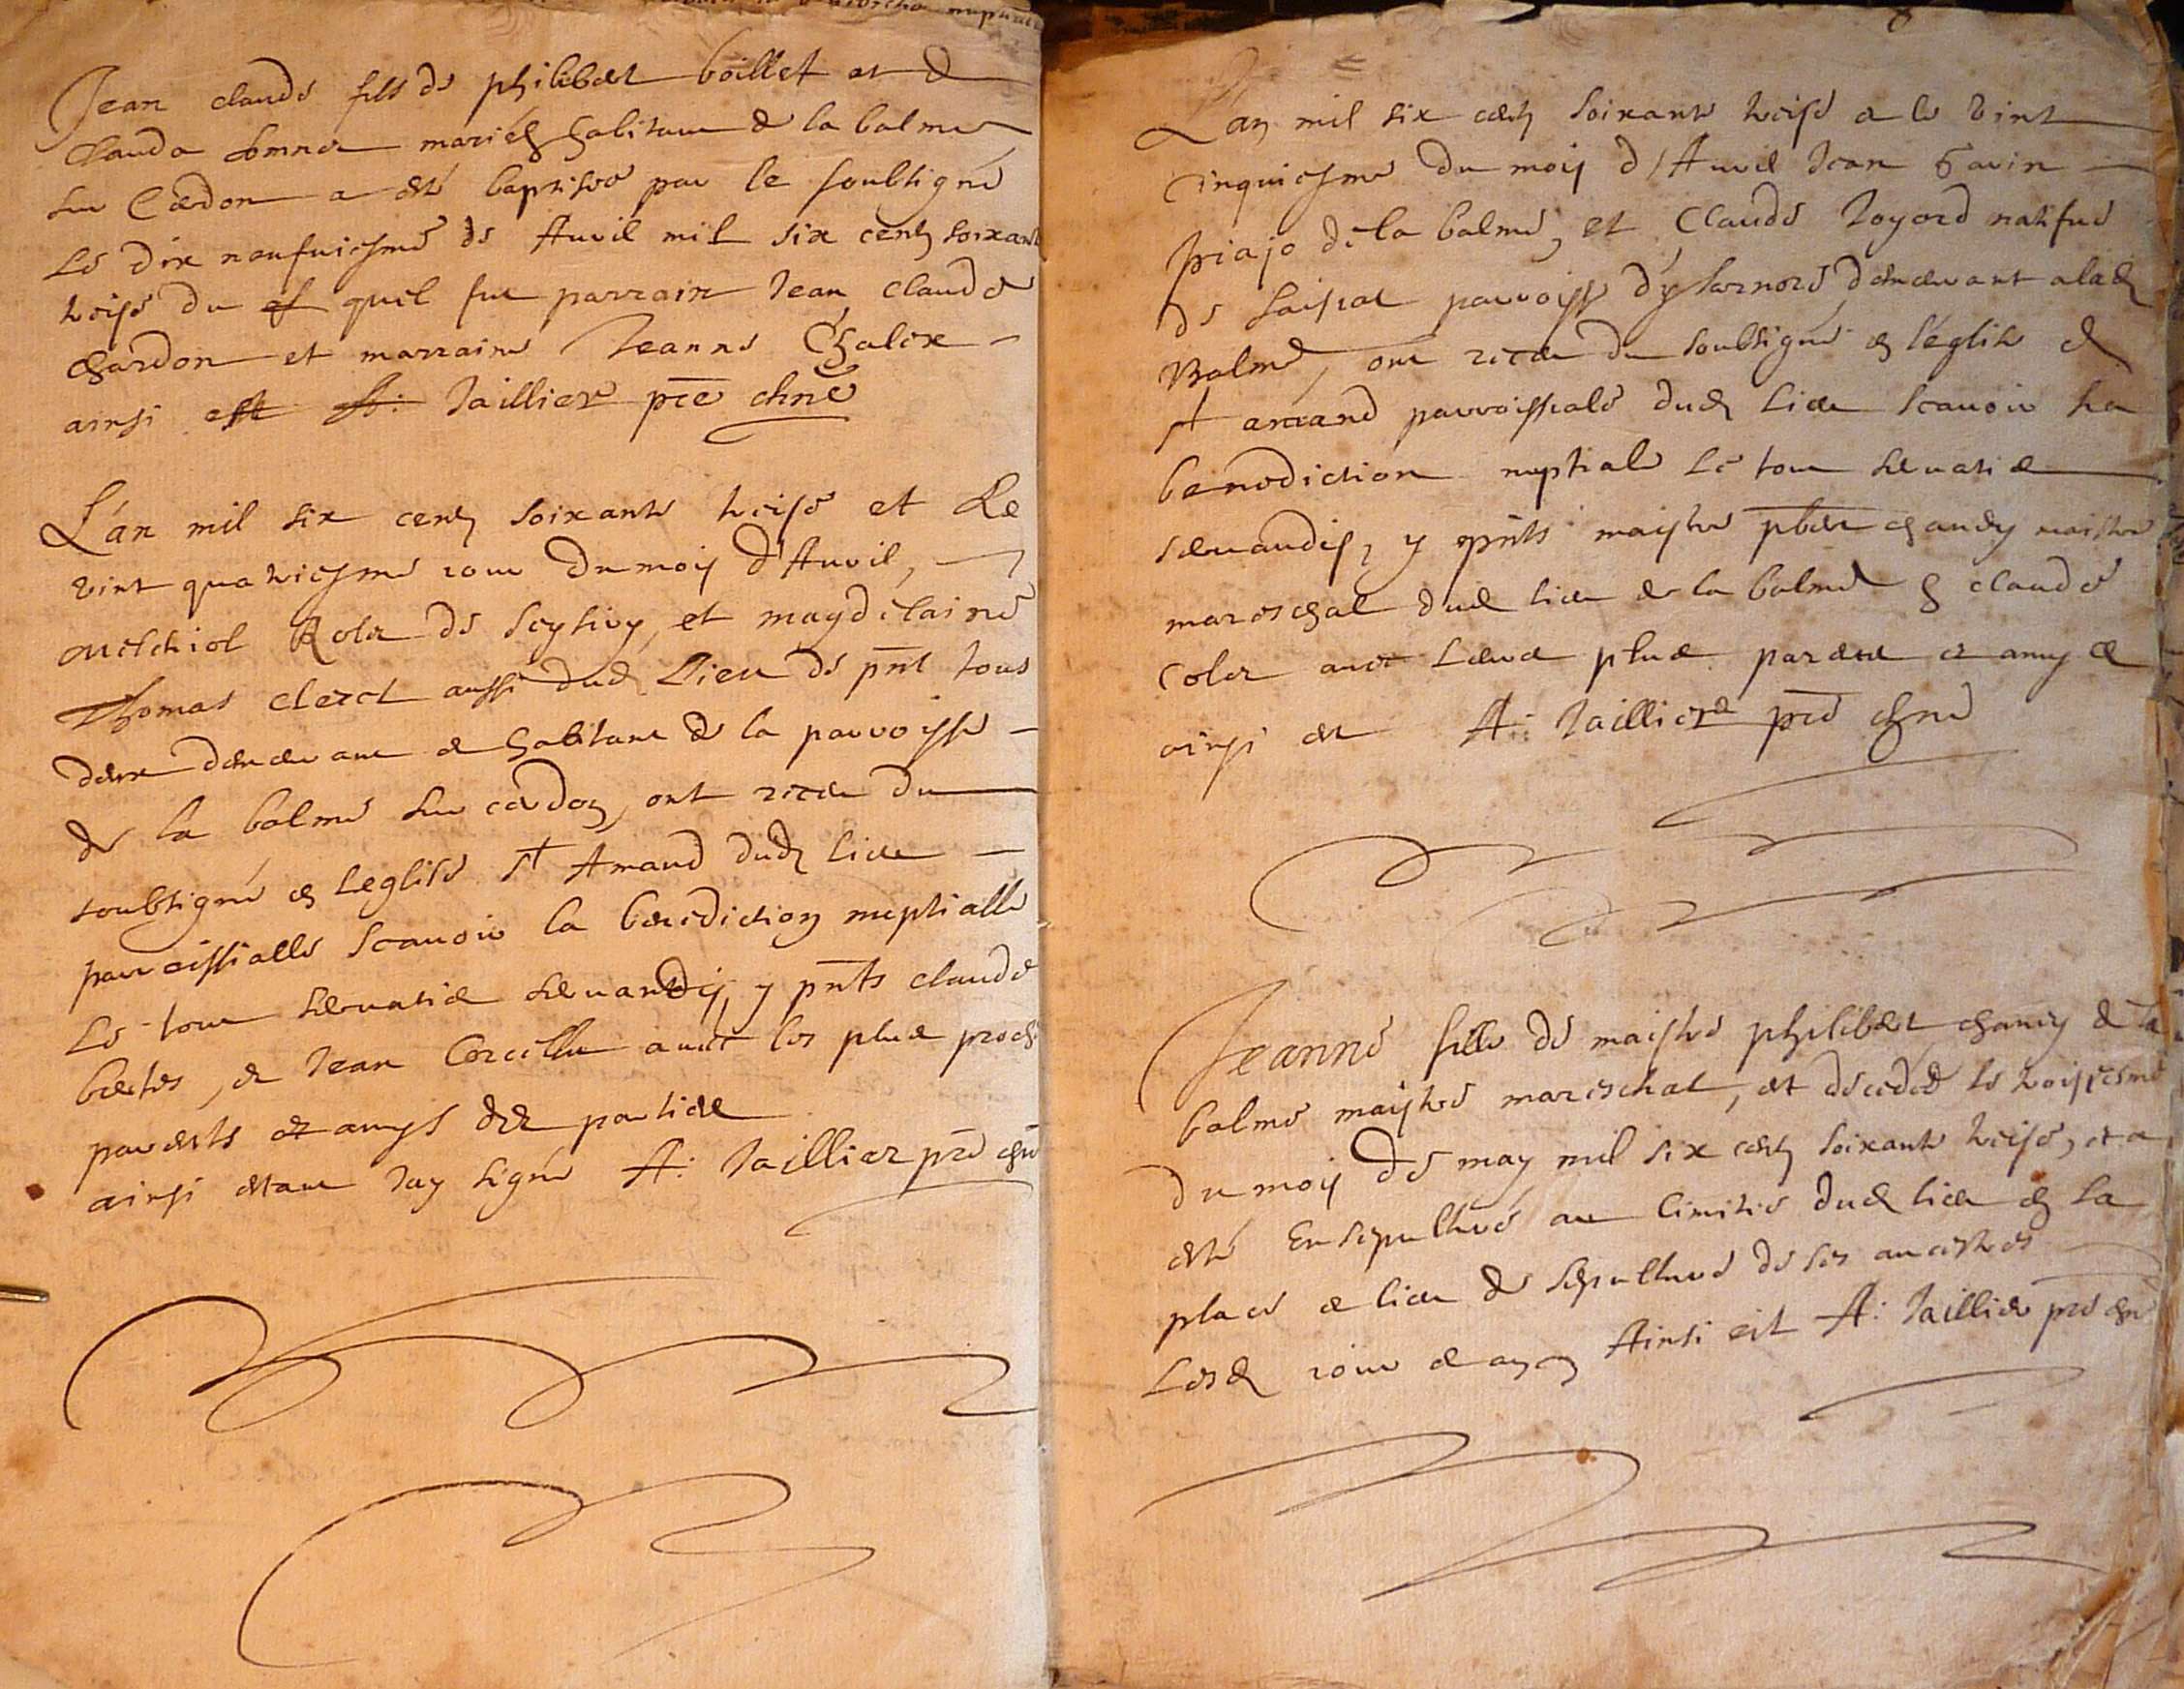 Jean claude fils de philibert boillet et de
Clauda mariés habitans de la balme
sur Cerdon a esté baptisee par le soubsigné
Le dix neufuiesme de Auril mil six cents soixante
treise du quel fut parrain Jean claude
chardon et marraine Jeanne Chaler
ainsi est A: Taillier pre
L'an mil six cents soixante treise et Le
vint quatriesme iour du mois d'Auril,
melchiol Rolet de et magdelaine
Thomas clerct aussi dud Lieu de pnt tous
deux demeurant et habitant de la parroisse
de la balme sur cerdon, ont receu du
soubsigné en Leglise St Amand dud lieu
parroissialle scauoir la benediction nuptialle
Le tout seruatis seruandis, y pnts claude
et Jean auec les plus proch
parents et amys des parties
ainsi estant Iay signé A: Taillier pre
L'an mil six cents soixante treise et le vint
cinquiesme du mois d'Auril Jean Sauin
de la balme, et Claude natifue
de parroisse demeurant a lad
Balme, ont receu du soubsigné en l'église de
st amand parroissiale dud Lieu scauoir La
benediction nuptiale Le tout seruatis
seruandis, y pnts maistre maistre
mareschal dud lieu de la balme & claude
Colet auec Leurs plus parents et amys
ainsi est A: Taillier pre
Jeanne fille de maistre philibert de la
balme maistre mareschal, est decedée le troisiesme
du mois de may mil six cents soixante treise, et a
esté Ensepulturé au Cimitie dud lieu en La
place et lieu de sepulture de ses ancestres
Lesd iour et an Ainsi est A: Taillier pre